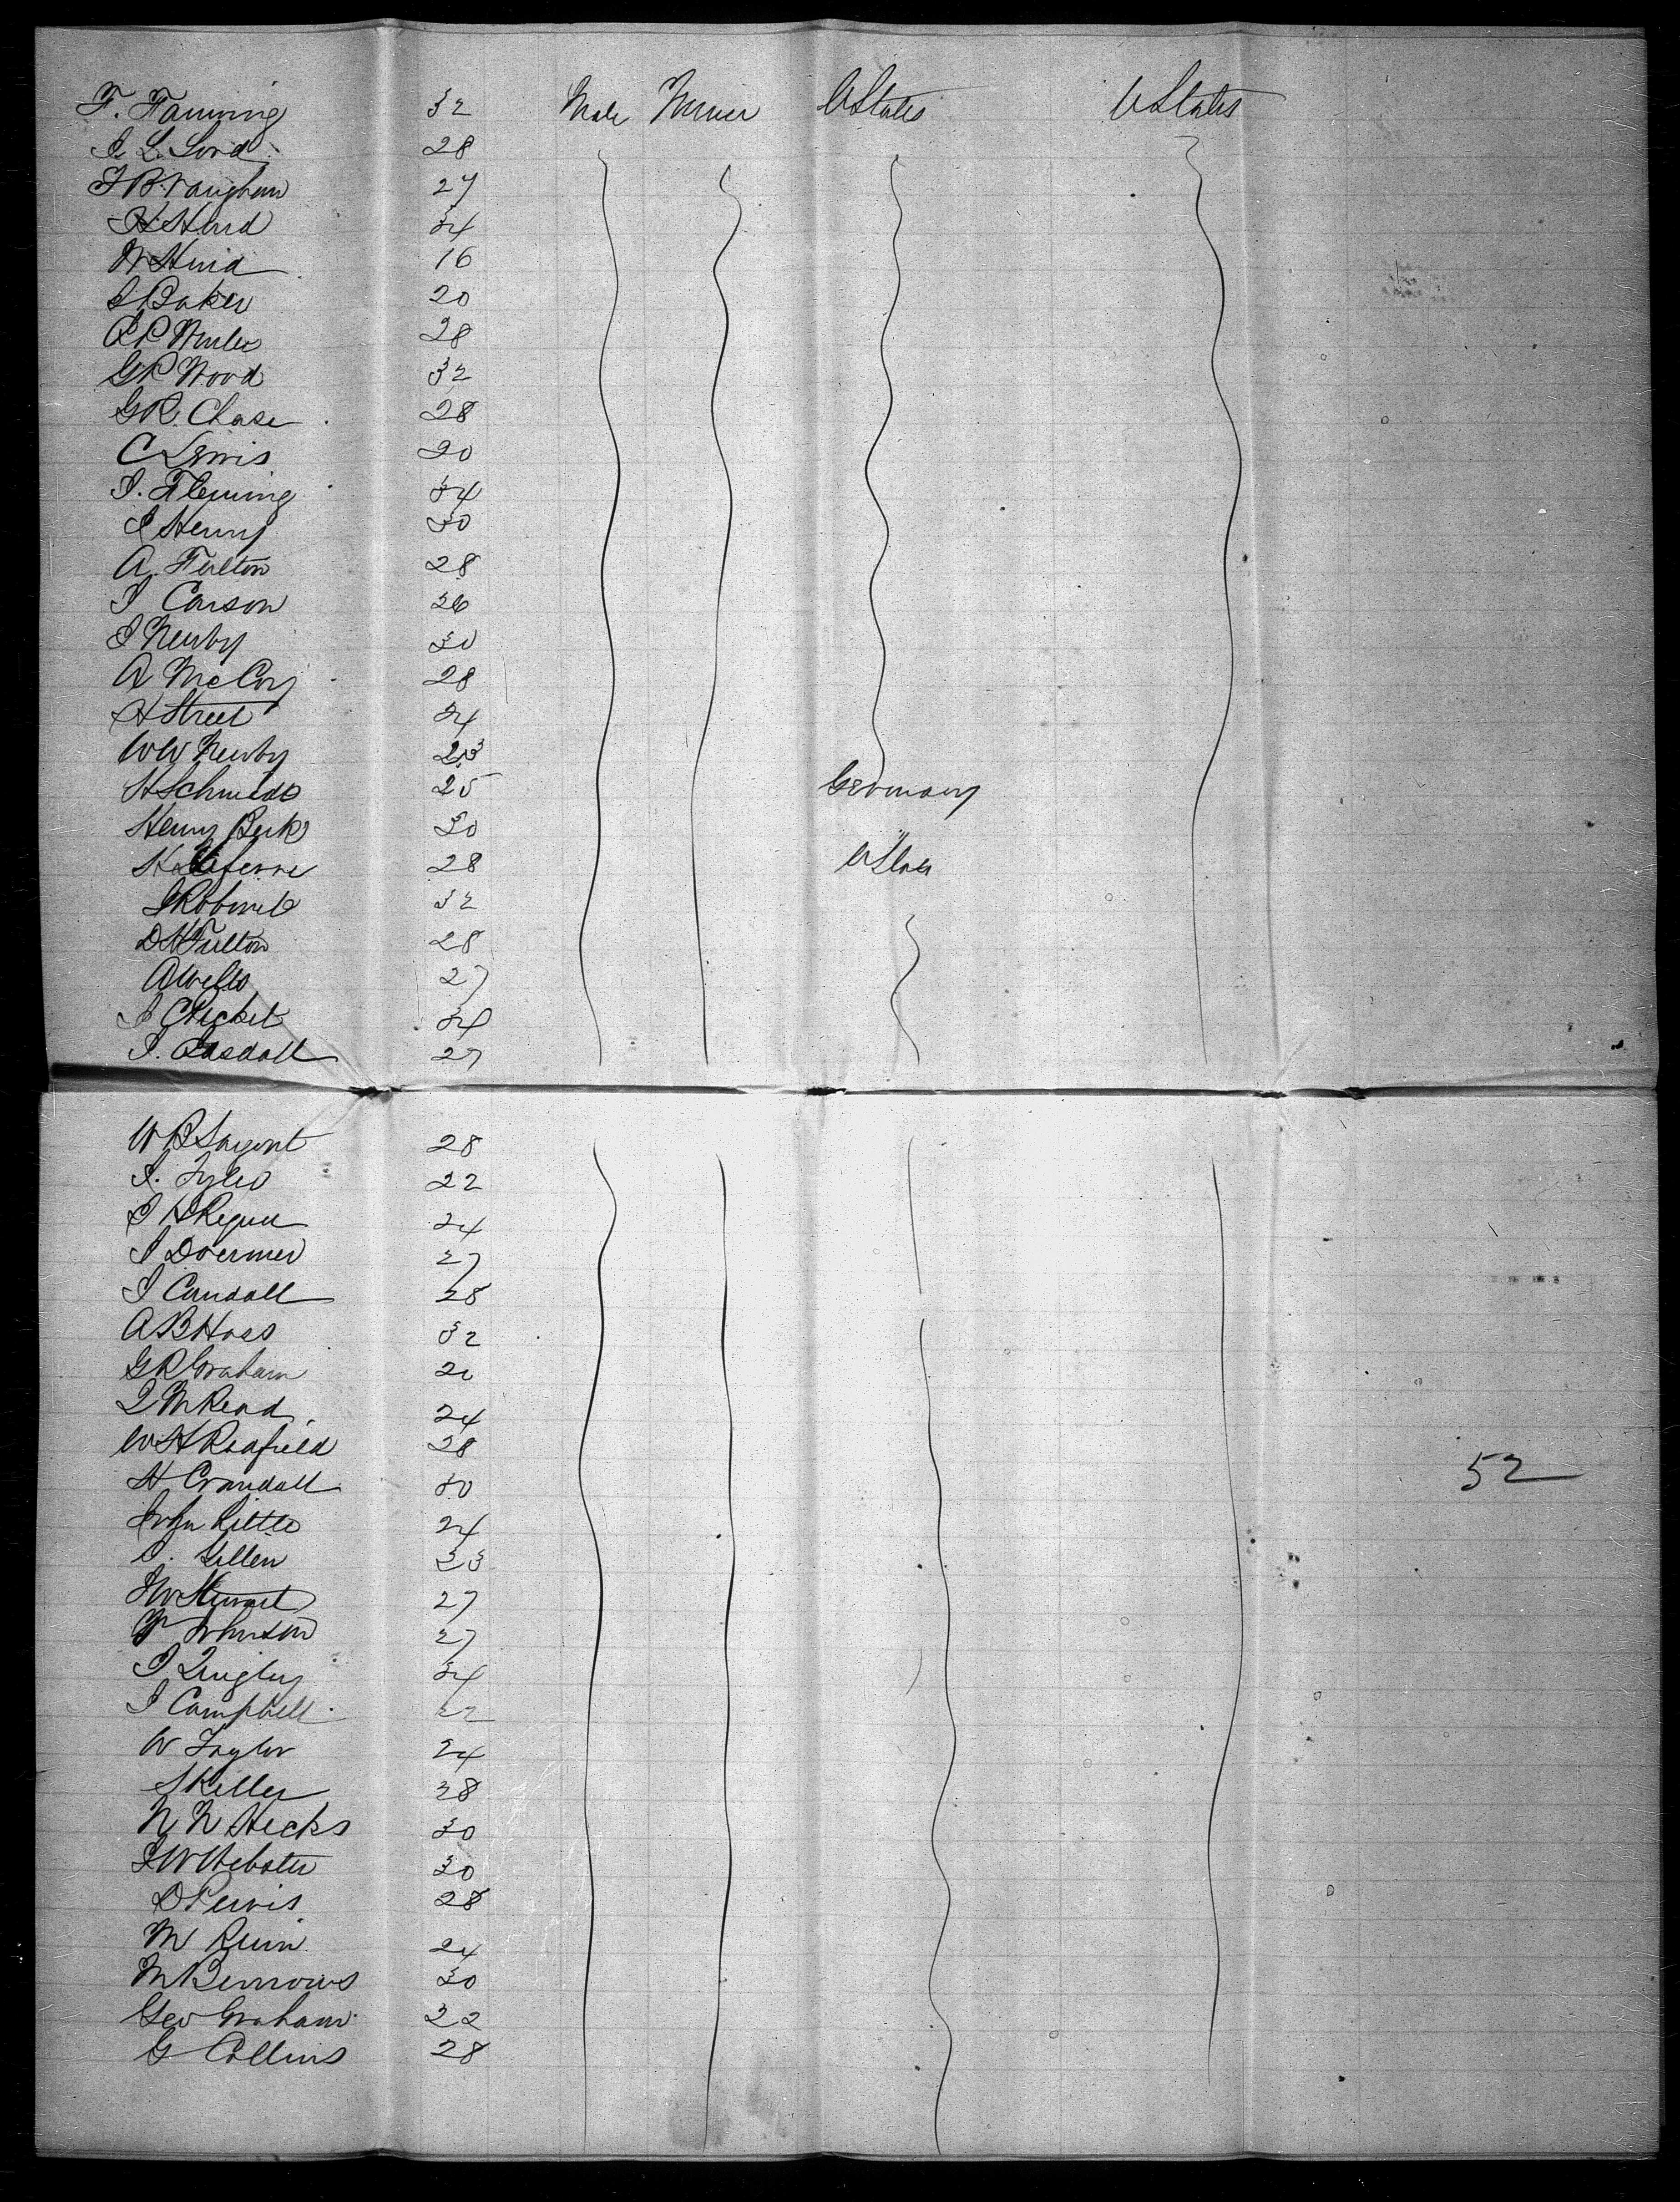 F. Fanning 32 Male Miner UStates UStates
I. L. Lord 28
F B Vaughan 27
H Hurd 34
W Hurd 16
S Baker 20
28
G P Wood 32
G R. Chase 28
C Lewis 20
I. Fleming 34
I Henry 30
A. Fulton 28
I Carson 26
I Newby 30
A McCoy 28
H Street 24
W W Newby 23
H Schmidt 25 Germany
Henry Beck 30 "
28 UStates
I Robinet 32
D H Fulton 28
A Wells 27
I C Pickel 34
I. Rasdall 27
W B Sargent 28
I. Tyler 22
I H 24
I Doermer 27
I Candall 28
A B Hoss 32
G R Graham 20
I M Read 24
W H Redfield 28
H Crandall 30
John Little 24
I. Gillen 23
I W Stewart 27
Johnson 27
I Quigley 34
I Campbell 22
W Taylor 24
S Kelley 28
N N Hecks 30
I W Webster 30
D Purvis 28
M Quin 24
M Burrows 30
Geo Graham 32
G Collins 28
52